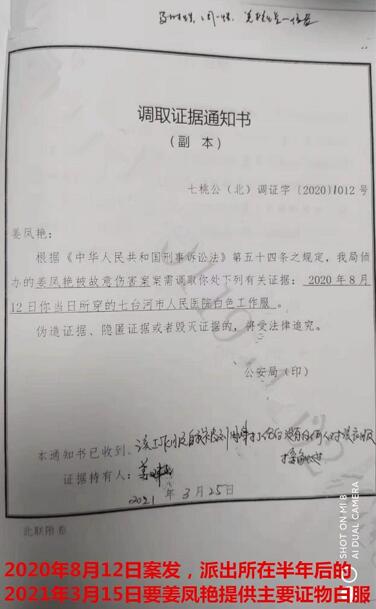 调取证据通知书
（副 本）
七桃公（北）调证字〔2020〕1012 号
姜凤艳：
根据《中华人民共和国刑事诉讼法》第五十四条之规定，我局侦
办的姜凤艳被故意伤害案案需调取你处下列有关证据：2020年8月
12日你当日所穿的七台河市人民医院白色工作服。
伪造证据、隐匿证据或者毁灭证据的，将受法律追究。
公安局（印）
该工作服自
本通知书已收到。
证据持有人：姜
2021 年 3 月 25 日
北联附卷
SHOT ON MI 8
AI DUAL CAMERA
2020年8月12日案发，派出所在半年后的
2021年3月15日要姜凤艳提供主要证物白服